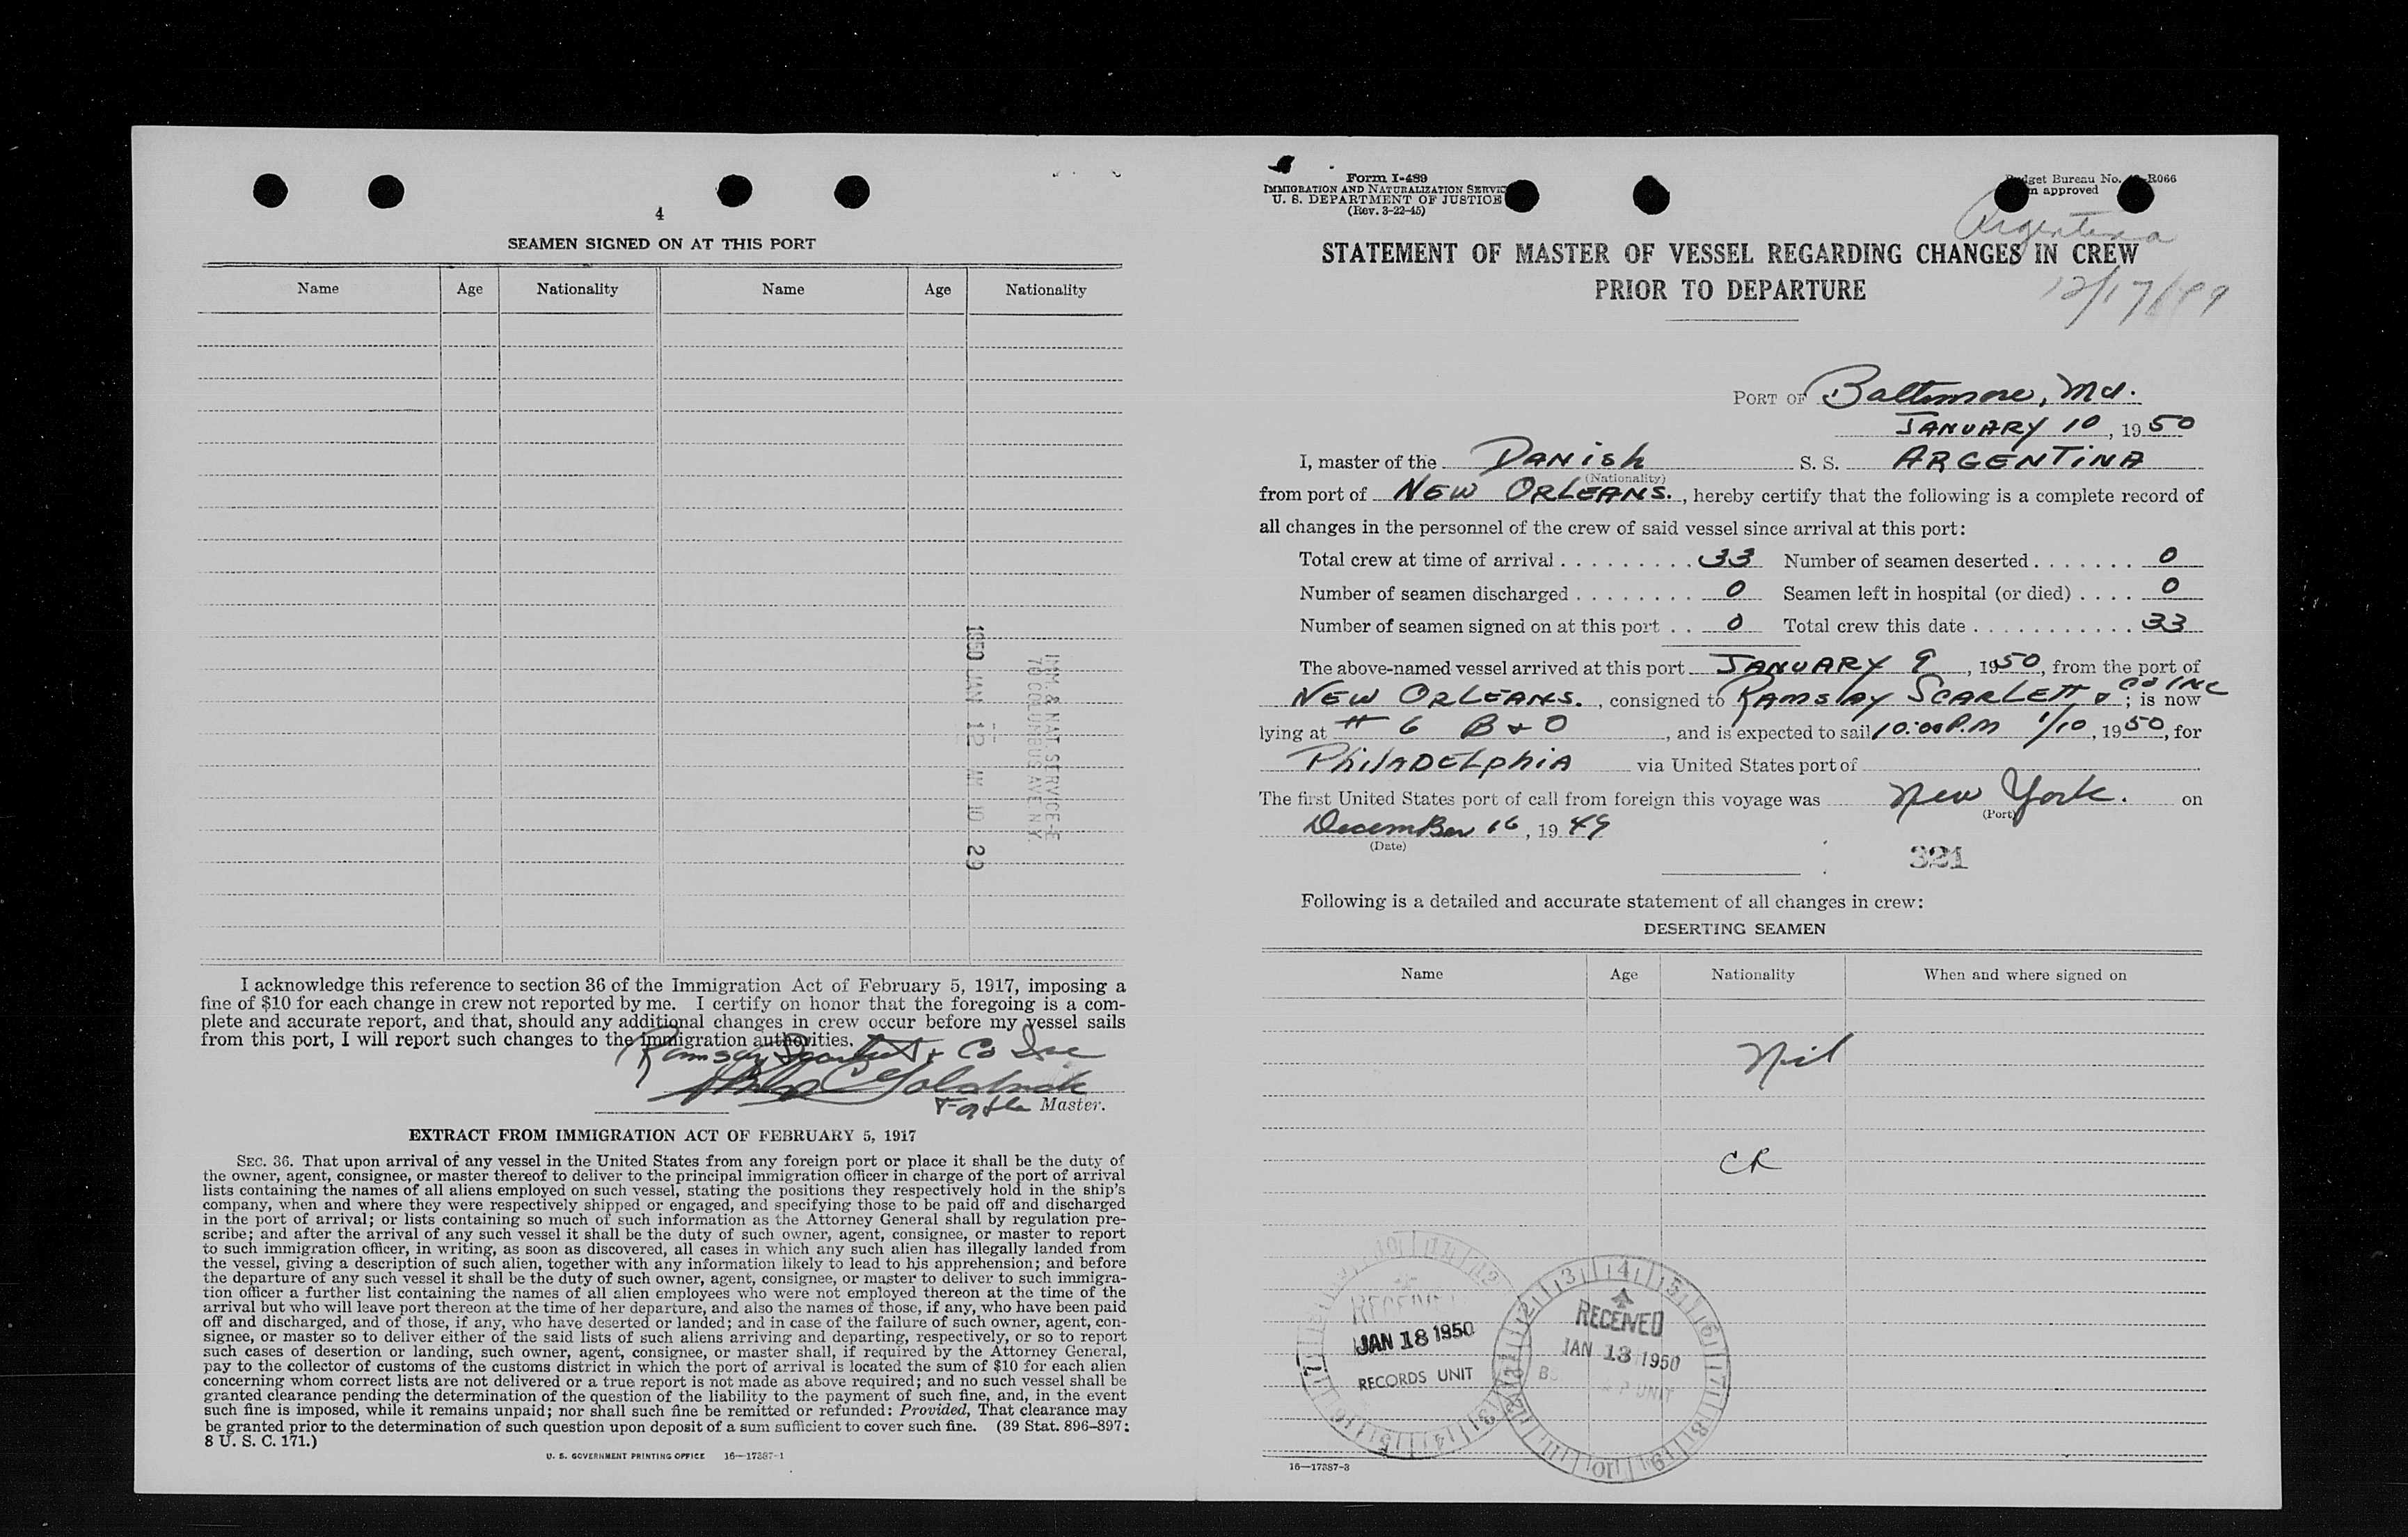 4
SEAMEN SIGNED ON AT THIS PORT
Name Age Nationality Name Age Nationality
1950 JAN 12 AM 10 29
IMM. & NAT. SERVICE-E
70 COLUMBUS AVE N.Y.
I acknowledge this reference to section 36 of the Immigration Act of February 5, 1917, imposing a
fine of $10 for each change in crew not reported by me. I certify on honor that the foregoing is a com-
plete and accurate report, and that, should any additional changes in crew occur before my vessel sails
from this port, I will report such changes to the immigration authorities.
Ramsay Scarlett & Co Inc
For the Master.
EXTRACT FROM IMMIGRATION ACT OF FEBRUARY 5, 1917
SEC. 36. That upon arrival of any vessel in the United States from any foreign port or place it shall be the duty of
the owner, agent, consignee, or master thereof to deliver to the principal immigration officer in charge of the port of arrival
lists containing the names of all aliens employed on such vessel, stating the positions they respectively hold in the ship's
company, when and where they were respectively shipped or engaged, and specifying those to be paid off and discharged
in the port of arrival; or lists containing so much of such information as the Attorney General shall by regulation pre-
scribe; and after the arrival of any such vessel it shall be the duty of such owner, agent, consignee, or master to report
to such immigration officer, in writing, as soon as discovered, all cases in which any such alien has illegally landed from
the vessel, giving a description of such alien, together with any information likely to lead to his apprehension; and before
the departure of any such vessel it shall be the duty of such owner, agent, consignee, or master to deliver to such immigra-
tion officer a further list containing the names of all alien employees who were not employed thereon at the time of the
arrival but who will leave port thereon at the time of her departure, and also the names of those, if any, who have been paid
off and discharged, and of those, if any, who have deserted or landed; and in case of the failure of such owner, agent, con-
signee, or master so to deliver either of the said lists of such aliens arriving and departing, respectively, or so to report
such cases of desertion or landing, such owner, agent, consignee, or master shall, if required by the Attorney General,
pay to the collector of customs of the customs district in which the port of arrival is located the sum of $10 for each alien
concerning whom correct lists are not delivered or a true report is not made as above required; and no such vessel shall be
granted clearance pending the determination of the question of the liability to the payment of such fine, and, in the event
such fine is imposed, while it remains unpaid; nor shall such fine be remitted or refunded: Provided, That clearance may
be granted prior to the determination of such question upon deposit of a sum sufficient to cover such fine. (39 Stat. 896-897;
8 U. S. C. 171.)
U. S. GOVERNMENT PRINTING OFFICE 16—17387-1
Form I-489
IMMIGRATION AND NATURALIZATION SERVICE
U. S. DEPARTMENT OF JUSTICE
(Rev. 3-22-45)
Budget Bureau No. R066
approved
Argentina
12/17/49
STATEMENT OF MASTER OF VESSEL REGARDING CHANGES IN CREW
PRIOR TO DEPARTURE
PORT OF Baltimore, Md.
JANUARY 10, 1950
I, master of the DANISH S. S. ARGENTINA
(Nationality)
from port of NEW ORLEANS., hereby certify that the following is a complete record of
all changes in the personnel of the crew of said vessel since arrival at this port:
Total crew at time of arrival 33 Number of seamen deserted 0
Number of seamen discharged 0 Seamen left in hospital (or died) 0
Number of seamen signed on at this port 0 Total crew this date 33
The above-named vessel arrived at this port JANUARY 9, 1950, from the port of
NEW ORLEANS., consigned to RAMSAY SCARLETT & CO INC; is now
lying at # 6 B & O, and is expected to sail 10:00 P.M 1/10, 1950, for
PHILADELPHIA via United States port of
The first United States port of call from foreign this voyage was New York. on
(Port)
December 16, 1949
(Date)
321
Following is a detailed and accurate statement of all changes in crew:
DESERTING SEAMEN
Name Age Nationality When and where signed on
Nil
CR
RECEIVED
JAN 18 1950
RECORDS UNIT
RECEIVED
JAN 13 1950
P UNIT
16—17387-3